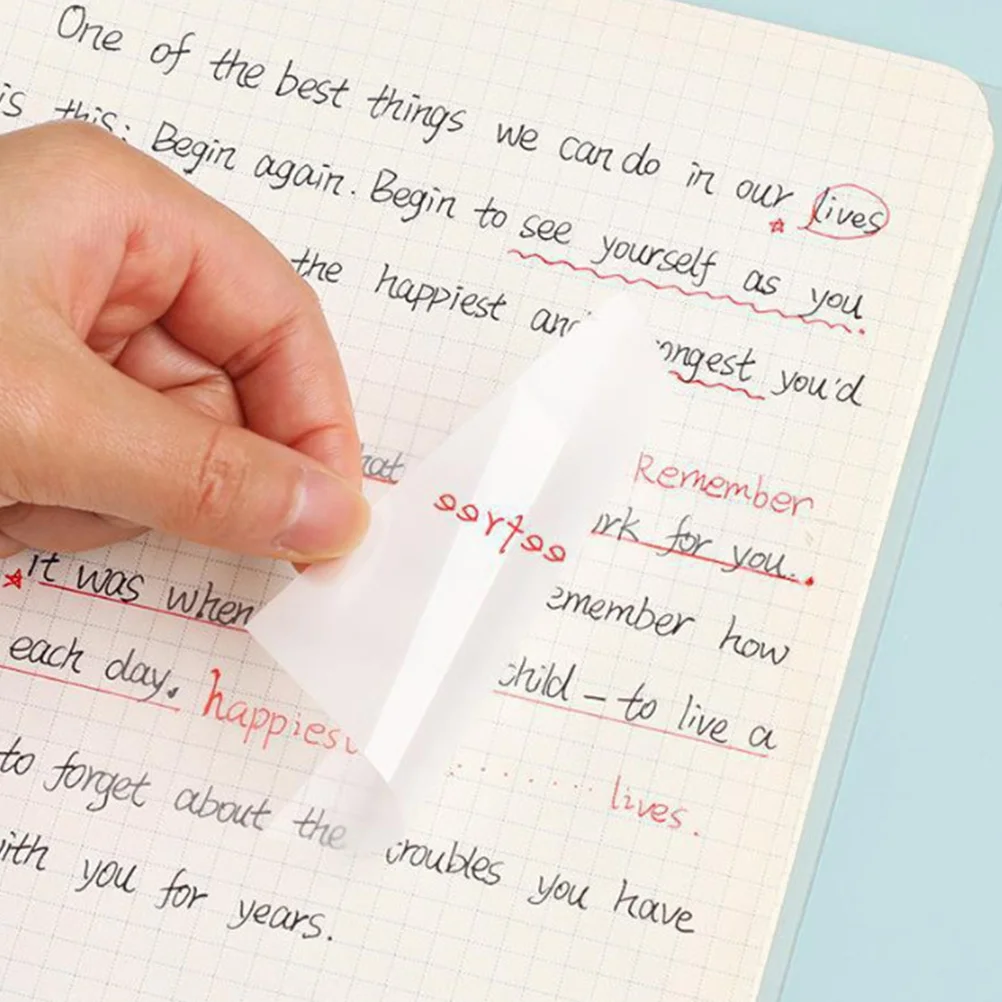 One of the best things we can do in our lives
is this: Begin again. Begin to see yourself as you
the happiest and ongest you'd
hat Remember
rk for you..
it was when emember how
each day. happiest child – to live a
lives.
to forget about the troubles you have
ith you for years.